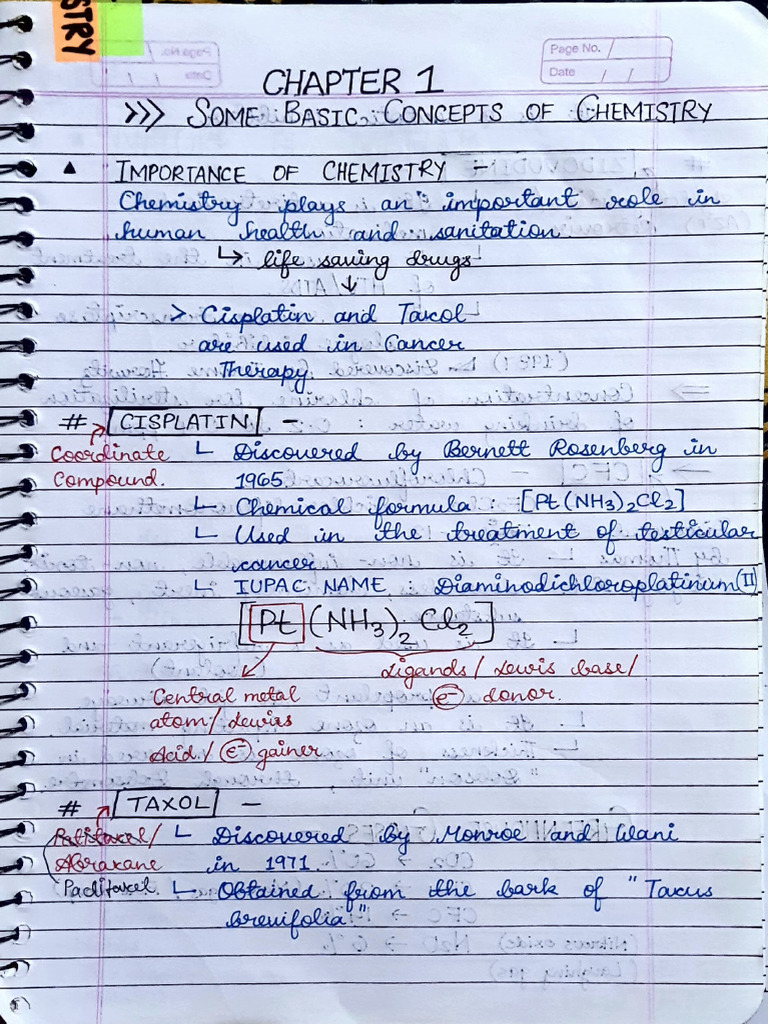 STRY
Page No.
Date / /
CHAPTER 1
>>> SOME BASIC CONCEPTS OF CHEMISTRY
▲ IMPORTANCE OF CHEMISTRY -
Chemistry plays an important role in
human health and sanitation
↳ life saving drugs
↓
> Cisplatin and Taxol
are used in Cancer
Therapy.
# CISPLATIN -
Coordinate
Compound.
↳ Discovered by Bernett Rosenberg in
1965
↳ Chemical formula : [Pt(NH3)2Cl2]
↳ Used in the treatment of testicular
cancer
↳ IUPAC NAME : Diaminodichloroplatinum(II)
[Pt(NH3)2Cl2]
Central metal
atom/Lewis
Acid/e- gainer
Ligands/Lewis base/
e- donor.
# TAXOL -
Abraxane
Paclitaxel.
↳ Discovered by Monroe and Wani
in 1971.
↳ Obtained from the bark of "Taxus
brevifolia"